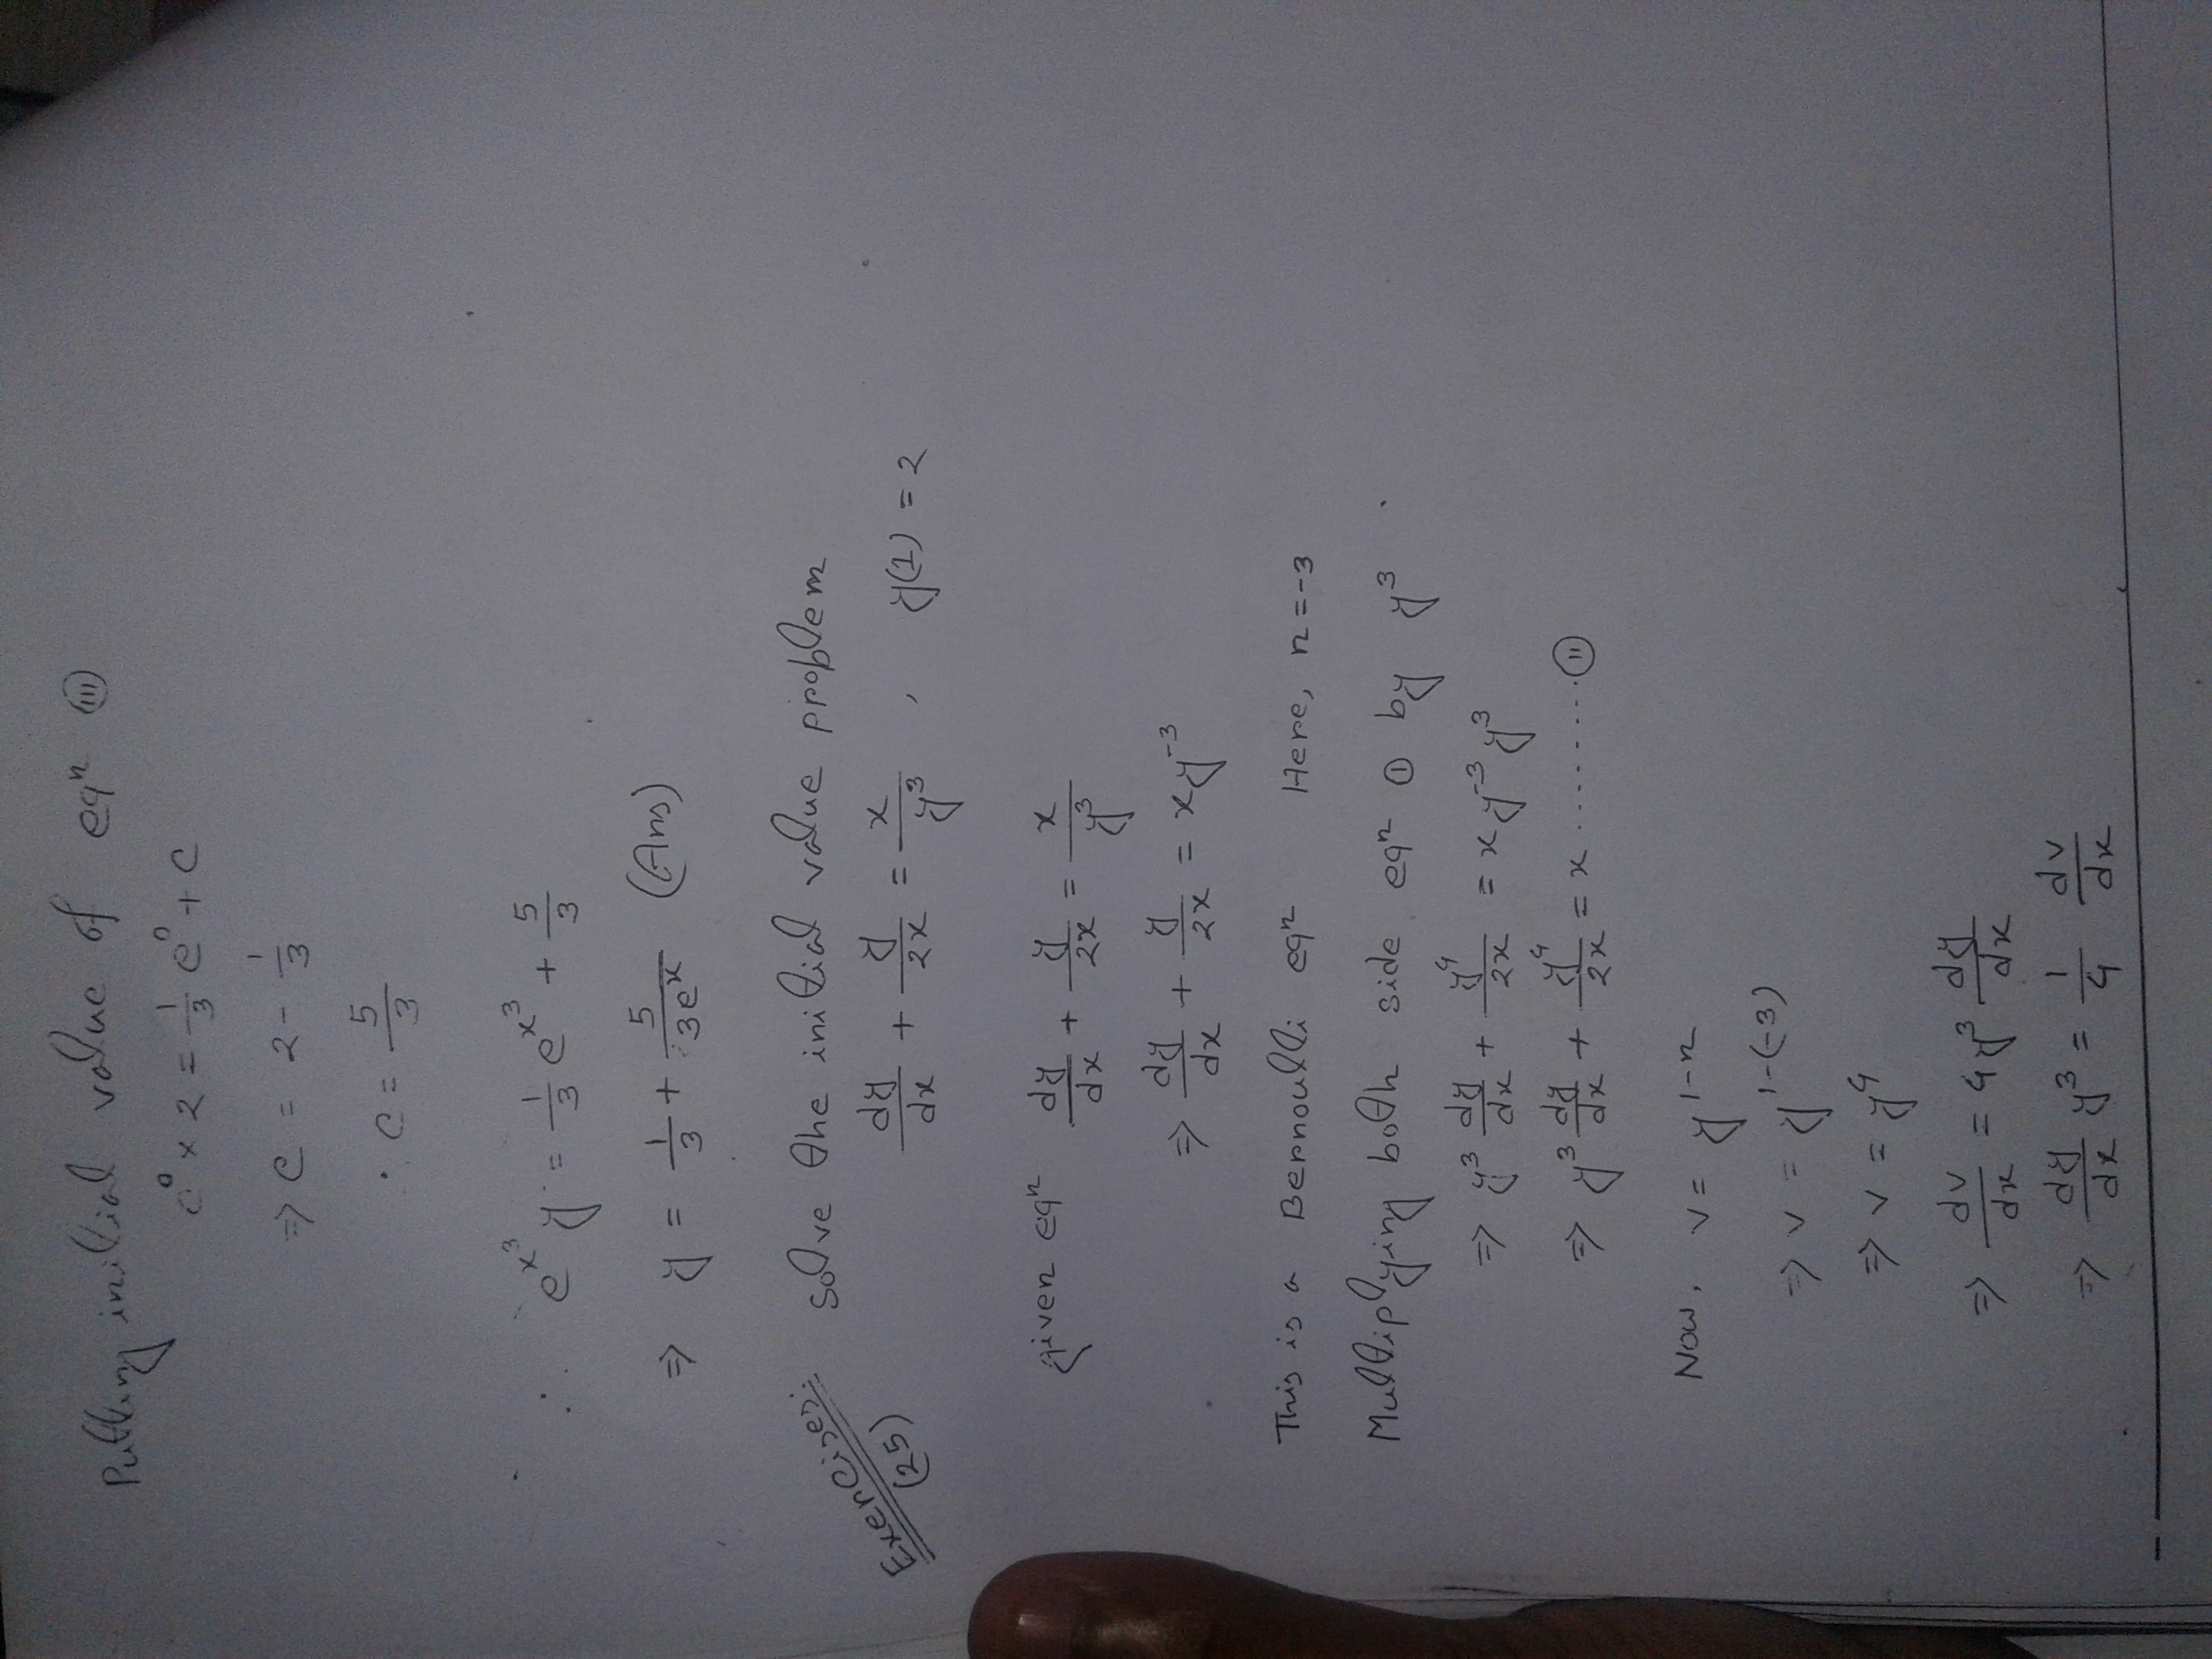 Putting initial value of eqⁿ (III)
e⁰ × 2 = 1/3 e⁰ + c
⇒ c = 2 - 1/3
∴ c = 5/3
∴ e^x³ y = 1/3 e^x³ + 5/3
⇒ y = 1/3 + 5/3e^x (Ans)
Exercises: Solve the initial value problem
(25) dy/dx + y/2x = x/y³ , y(1) = 2
given eqⁿ dy/dx + y/2x = x/y³
⇒ dy/dx + y/2x = xy⁻³
This is a Bernoulli eqⁿ Here, n = -3
Multiplying both side eqⁿ ① by y³
⇒ y³ dy/dx + y⁴/2x = x y⁻³ y³
⇒ y³ dy/dx + y⁴/2x = x ........ (II)
Now, v = y^1-n
⇒ v = y^1-(-3)
⇒ v = y⁴
⇒ dv/dx = 4y³ dy/dx
⇒ dy/dx y³ = 1/4 dv/dx